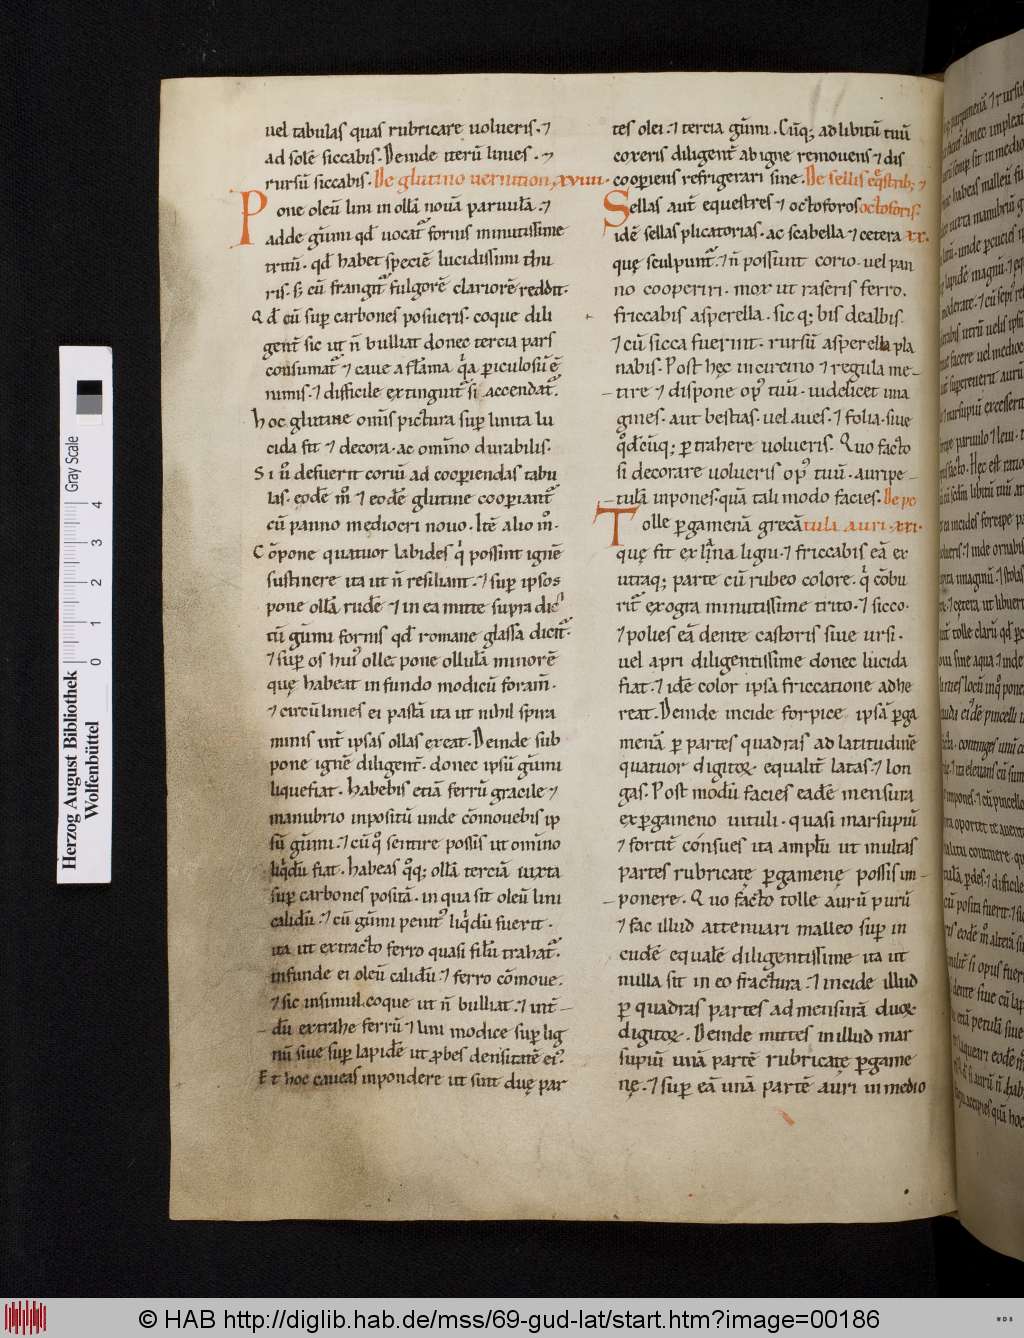 uel tabulas quas rubricare uolueris. ⁊
ad solē siccabis. Deinde iterū linies. ⁊
rursū siccabis. De glutino uernition. xviiii.
Pone oleū lini in ollā nouā paruulā. ⁊
adde gūmi qd̄ uocat᷑ fornis minutissime
tritū. qd̄ habet speciē lucidissimi thu
ris. s; cū frangit᷑ fulgorē clariorē reddit.
Qd̄ cū sup̄ carbones posueris. coque dili
gent̄ sic ut n̄ bulliat donec tercia pars
consumat᷑ ⁊ caue a flāma qͥa p̱iculosū ē
nimis. ⁊ difficile extinguit᷑ si accendat᷑.
Hoc glutine om̄is pictura sup̄ linita lu
cida fit ⁊ decora. ac om̄ino durabilis.
Si ū defuerit coriū ad coop̱iendas tabu
las. eodē m̊ ⁊ eodē glutine coop̱iant᷑
cū panno mediocri nouo. Itē alio m̊.
Cōpone quatuor labides qͥ possint ignē
sustinere ita ut n̄ resiliant. ⁊ sup̄ ipsos
pone ollā rudē ⁊ in ea mitte supra dic
tū gūmi fornis qd̄ romane glassa dicit᷑.
⁊ sup̄ os huiꝰ olle pone ollulā minorē
quę habeat in fundo modicū foram̄.
⁊ circūlinies ei pastā ita ut nihil spira
minis int̄ ipsas ollas exeat. Deinde sub
pone ignē diligent̄. donec ipsū gūmi
liquefiat. Habebis etiā ferrū gracile ⁊
manubrio inpositū unde cōmouebis ip
sū gūmi. ⁊ cū qͦ sentire possis ut om̄ino
liqͥdū fiat. Habeas qͦq; ollā terciā iuxta
sup̄ carbones positā. in qua sit oleū lini
calidū. ⁊ cū gūmi penitꝰ liqͥdū fuerit.
ita ut extracto ferro quasi filū trahat᷑.
infunde ei oleū calidū ⁊ ferro cōmoue.
⁊ sic insimul coque ut n̄ bulliat. ⁊ int̄
dū extrahe ferrū ⁊ lini modice sup̄ lig
nū siue sup̄ lapidē ut p̱bes densitatē eiꝰ.
Et hoc caueas inpondere ut sint duę par
tes olei. ⁊ tercia gūmi. Cūq; ad libitū tuū
coxeris diligent̄ ab igne remouens ⁊ dis
coop̱iens refrigerari sine. De sellis eq̄strib; ⁊
Sellas aut̄ equestres ⁊ octoforos octoforis.
idē sellas plicatorias. ac scabella ⁊ cetera xx.
quę sculpunt᷑. ⁊ n̄ possunt corio. uel pan
no cooperiri. mox ut raseris ferro.
friccabis asperella. sic q; bis dealbis.
⁊ cū sicca fuerint. rursū asperella pla
nabis. Post hęc in circino ⁊ regula me
tire ⁊ dispone opꝰ tuū. uidelicet ima
gines. aut bestias. uel aues. ⁊ folia. siue
qͦdcūq; p̱trahere uolueris. Quo facto
si decorare uolueris opꝰ tuū. auri pe
tulā inpones. quā tali modo facies. De pe
Tolle p̱gamenā grecā tula auri. xxi.
quę fit ex lͥna ligni. ⁊ friccabis eā ex
utraq; parte cū rubeo colore. qͥ cōbu
rit᷑ ex ogra minutissime trito. ⁊ sicco.
⁊ polies eā dente castoris siue ursi.
uel apri diligentissime donec lucida
fiat. ⁊ idē color ipsa friccatione adhe
reat. Deinde incide forpice ipsā p̱ga
menā p̱ partes quadras ad latitudinē
quatuor digitoꝝ. equalit̄ latas. ⁊ lon
gas. Post modū facies eadē mensura
ex p̱gameno uituli. quasi marsupiū
⁊ fortit̄ consues ita amplū ut multas
partes rubricatę p̱gamenę possis im
ponere. Quo facto tolle aurū purū
⁊ fac illud attenuari malleo sup̄ in
cudē equalē diligentissime ita ut
nulla sit in eo fractura. ⁊ incide illud
p̱ quadras partes ad mensurā duoꝝ
digitoꝝ. Deinde mittes in illud mar
supiū unā partē rubricatę p̱game
nę. ⁊ sup̄ eā unā partē auri in medio
Herzog August Bibliothek
Wolfenbüttel
Gray Scale
0 1 2 3 4
© HAB http://diglib.hab.de/mss/69-gud-lat/start.htm?image=00186